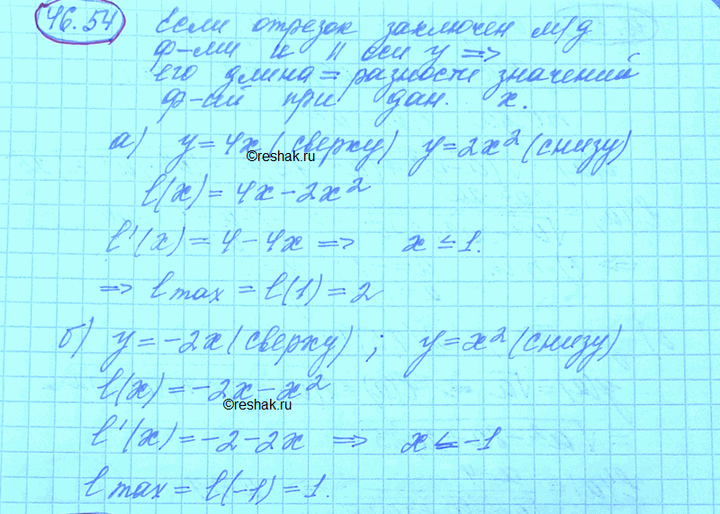 46.54
Если отрезок заключен м/д
ф-ми и || оси y =>
его длина = разности значений
ф-ий при дан. x.
а) y = 4x (сверху) y = 2x² (снизу)
©reshak.ru
l(x) = 4x - 2x²
l'(x) = 4 - 4x => x = 1.
=> l max = l(1) = 2
б) y = -2x (сверху) ; y = x² (снизу)
l(x) = -2x - x²
©reshak.ru
l'(x) = -2 - 2x => x = -1
l max = l(-1) = 1.